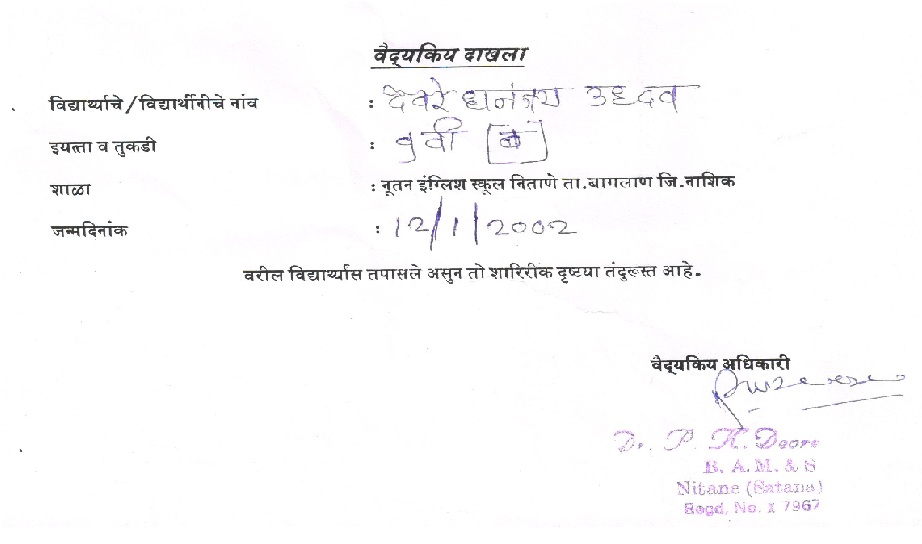 वैद्यकिय दाखला
विद्यार्थ्याचे/विद्यार्थीनीचे नांव : देवरे धनंजय उद्धव
इयत्ता व तुकडी : ७वी ब
शाळा : नूतन इंग्लिश स्कूल निताणे ता.बागलाण जि.नाशिक
जन्मदिनांक : 12/1/2002
वरील विद्यार्थ्यास तपासले असुन तो शारिरीक दृष्टया तंदुरूस्त आहे.
वैद्यकिय अधिकारी
Dr. P. K. Deore
B. A. M. & S
Nitane (Satana)
Regd, No. I 7967